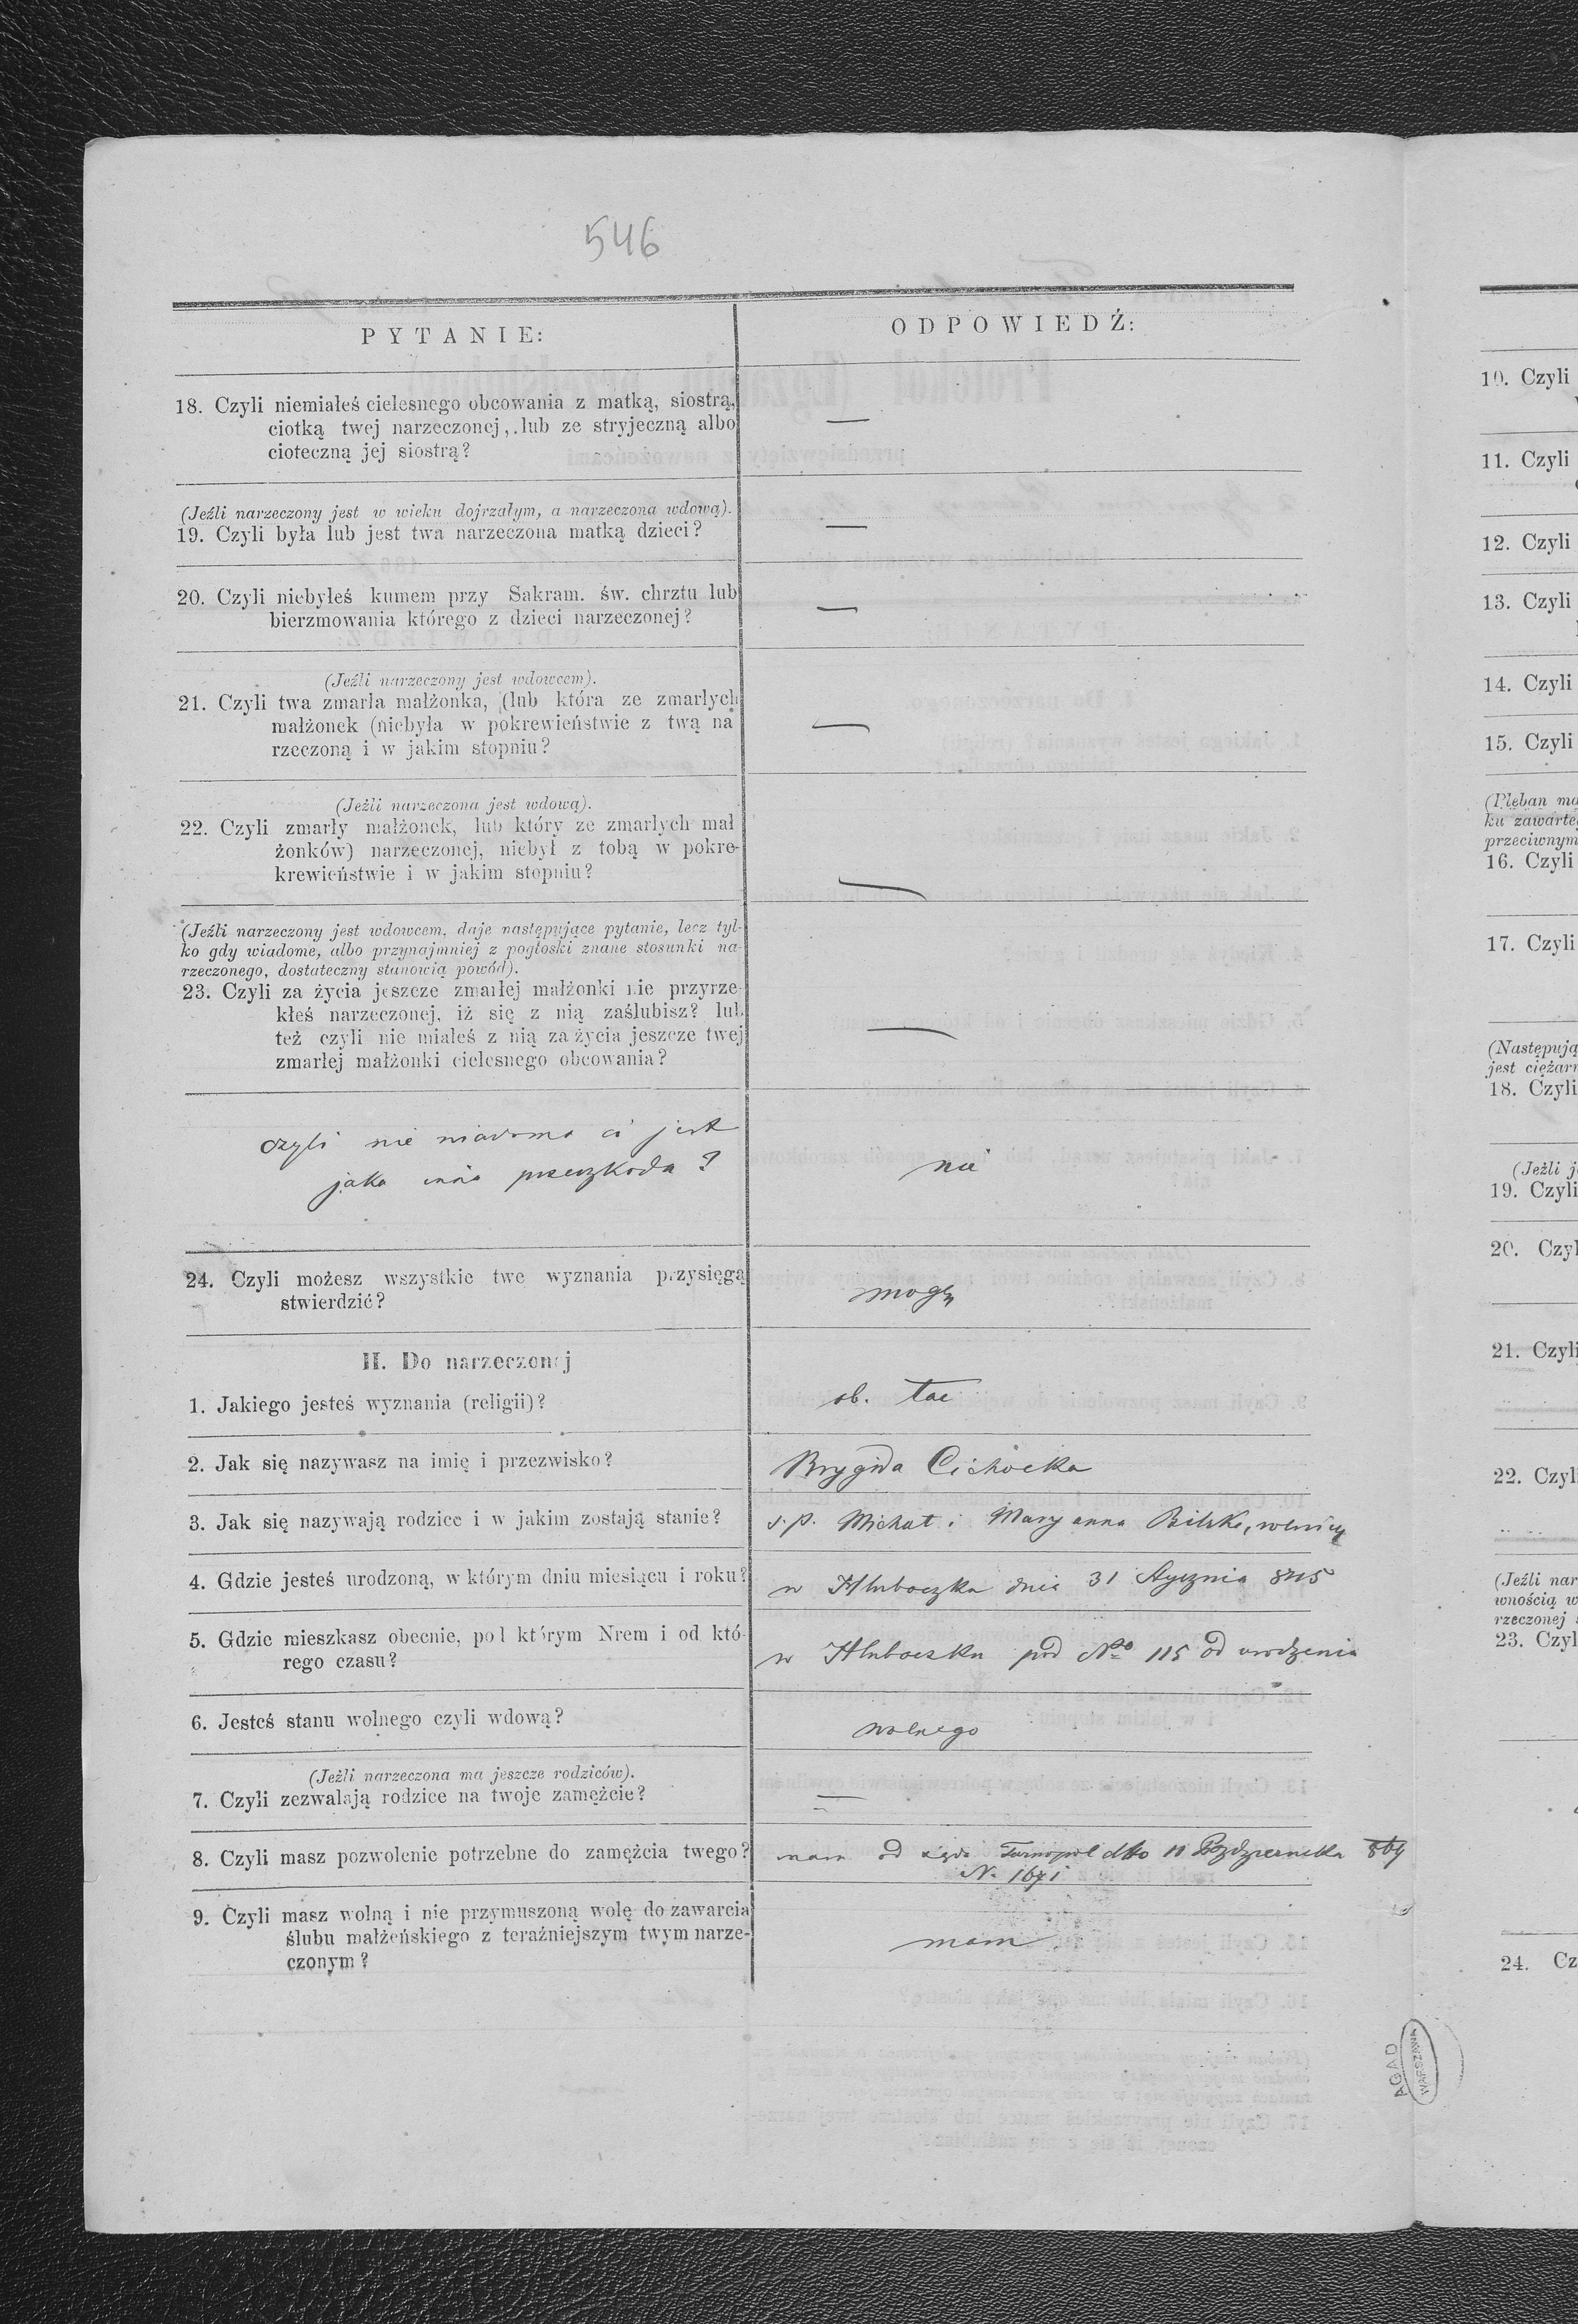 546
PYTANIE:
ODPOWIEDŹ:
18. Czyli niemiałeś cielesnego obcowania z matką, siostrą,
ciotką twej narzeczonej, lub ze stryjeczną albo
cioteczną jej siostrą?
—
(Jeźli narzeczony jest w wieku dojrzałym, a narzeczona wdową).
19. Czyli była lub jest twa narzeczona matką dzieci?
—
20. Czyli niebyłeś kumem przy Sakram. św. chrztu lub
bierzmowania którego z dzieci narzeczonej?
—
(Jeźli narzeczony jest wdowcem).
21. Czyli twa zmarła małżonka, (lub która ze zmarłych
małżonek (niebyła w pokrewieństwie z twą na
rzeczoną i w jakim stopniu?
—
(Jeźli narzeczona jest wdową).
22. Czyli zmarły małżonek, lub który ze zmarłych mał
żonków) narzeczonej, niebył z tobą w pokre-
krewieństwie i w jakim stopniu?
—
(Jeźli narzeczony jest wdowcem, daje następujące pytanie, lecz tyl-
ko gdy wiadome, albo przynajmniej z pogłoski znane stosunki na-
rzeczonego, dostateczny stanowią powód).
23. Czyli za życia jeszcze zmarłej małżonki nie przyrze-
kłeś narzeczonej, iż się z nią zaślubisz? lub
też czyli nie miałeś z nią za życia jeszcze twej
zmarłej małżonki cielesnego obcowania?
—
czyli nie wiadoma ci jest
jaka inna przeszkoda?
nie
24. Czyli możesz wszystkie twe wyznania przysięgą
stwierdzić?
mogę
II. Do narzeczonej
1. Jakiego jesteś wyznania (religii)?
ob. łac
2. Jak się nazywasz na imię i przezwisko?
Brygida Cichocka
3. Jak się nazywają rodzice i w jakim zostają stanie?
s.p. Michał i Maryanna Bilska, rolnicy
4. Gdzie jesteś urodzoną, w którym dniu miesiącu i roku?
w Hłuboczku dnia 31 Stycznia 845
5. Gdzie mieszkasz obecnie, pod którym Nrem i od któ-
rego czasu?
w Hłuboczku pod No 115 od urodzenia
6. Jesteś stanu wolnego czyli wdową?
wolnego
(Jeźli narzeczona ma jeszcze rodziców).
7. Czyli zezwalają rodzice na twoje zamęźcie?
—
8. Czyli masz pozwolenie potrzebne do zamęźcia twego?
mam od sądu Tarnopol dtto 11 Października 869
N. 1671
9. Czyli masz wolną i nie przymuszoną wolę do zawarcia
ślubu małżeńskiego z teraźniejszym twym narze-
czonym?
mam
AGAD
WARSZAWA
10. Czyli
11. Czyli
12. Czyli
13. Czyli
14. Czyli
15. Czyli
(Pleban ma
ku zawarte
przeciwnym
16. Czyli
17. Czyli
(Następują
jest ciężarn
18. Czyli
(Jeźli j
19. Czyli
20. Czyl
21. Czyli
22. Czyl
(Jeźli nar
wnością w
rzeczonej
23. Czyl
24. Cz